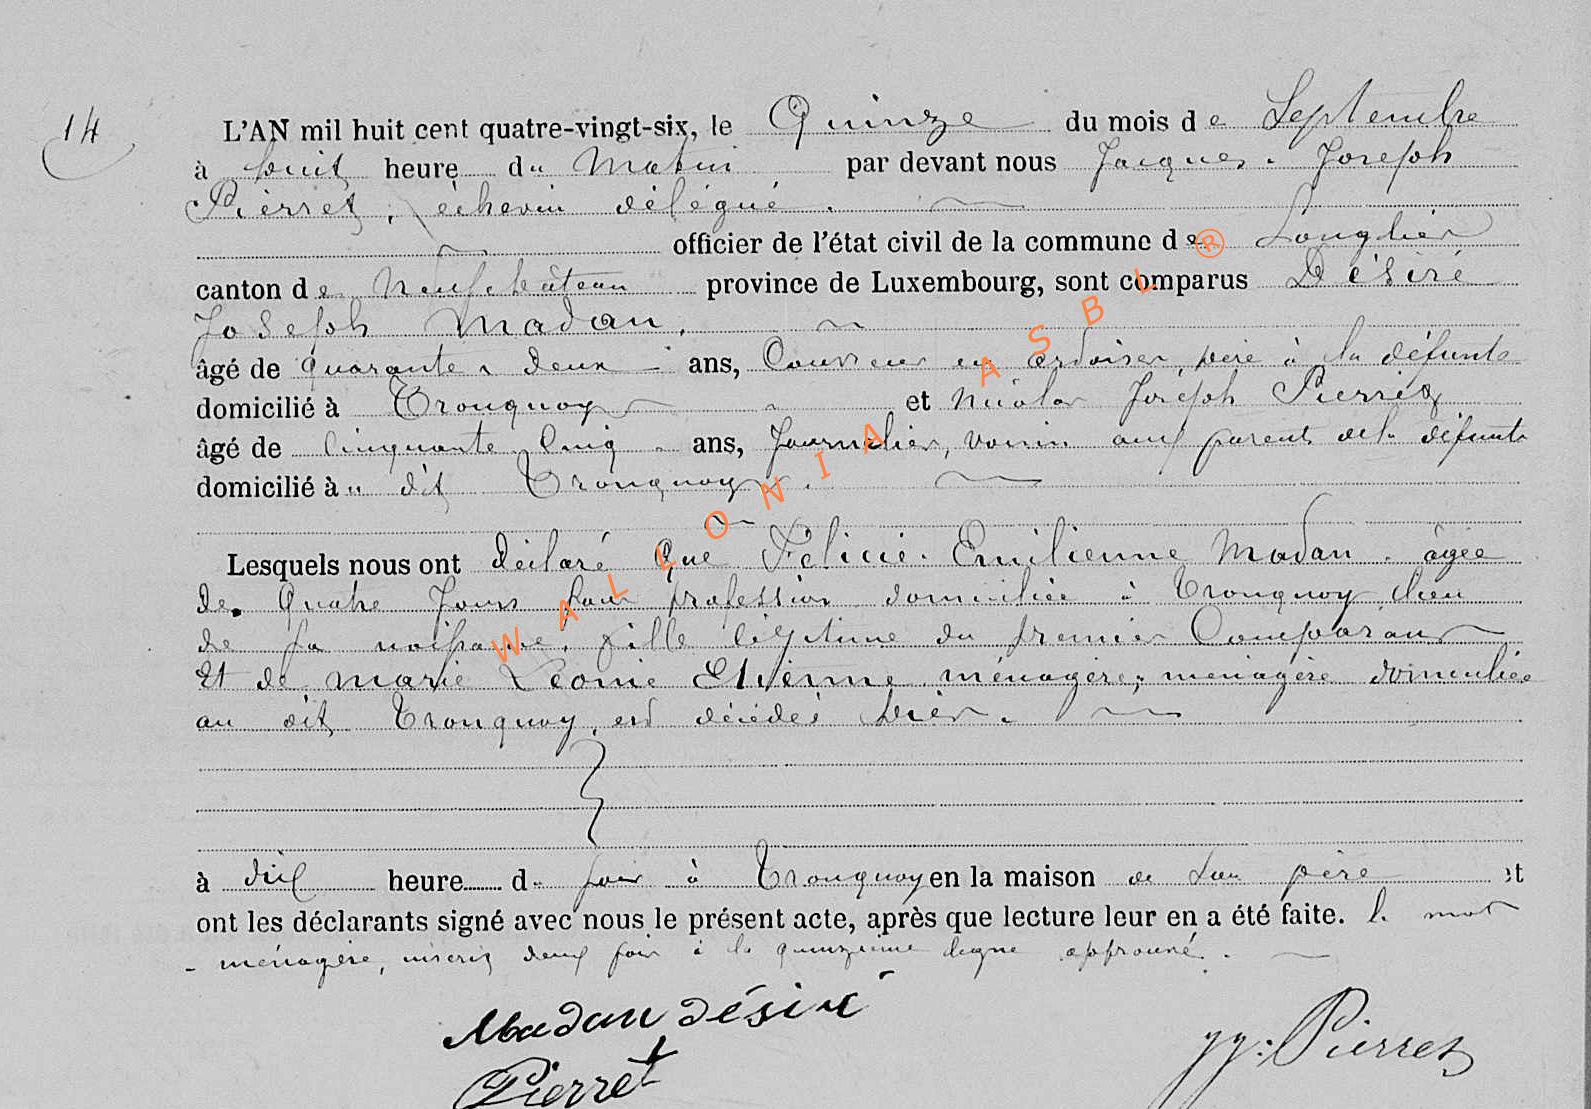 14
L'AN mil huit cent quatre-vingt-six, le Quinze du mois de Septembre
à huit heure du Matin par devant nous Jacques Joseph
Pierret, échevin délégué.
officier de l'état civil de la commune de Longlier
canton de Neufchâteau province de Luxembourg, sont comparus Désiré
Joseph Madan,
âgé de quarante deux ans, Couvreur en ardoises, père à la défunte
domicilié à Tronquoy et Nicolas Joseph Pierret
âgé de Cinquante Cinq ans, Journalier, voisin aux parents de la défunte
domicilié à dit Tronquoy.
Lesquels nous ont déclaré que Félicie Emilienne Madan âgée
de quatre jours sans profession domiciliée à Tronquoy, lieu
de sa naissance, fille légitime du premier Comparant
Et de Marie Léonie Etienne ménagère, ménagère domiciliée
au dit Tronquoy, est décédée hier.
à dix heure du soir à Tronquoy en la maison de son père et
ont les déclarants signé avec nous le présent acte, après que lecture leur en a été faite. le mot
ménagère, inscrit deux fois à la quinzième ligne approuvé.
Madan désiré
Pierret
JJ: Pierret
WALLONIA ASBL ®